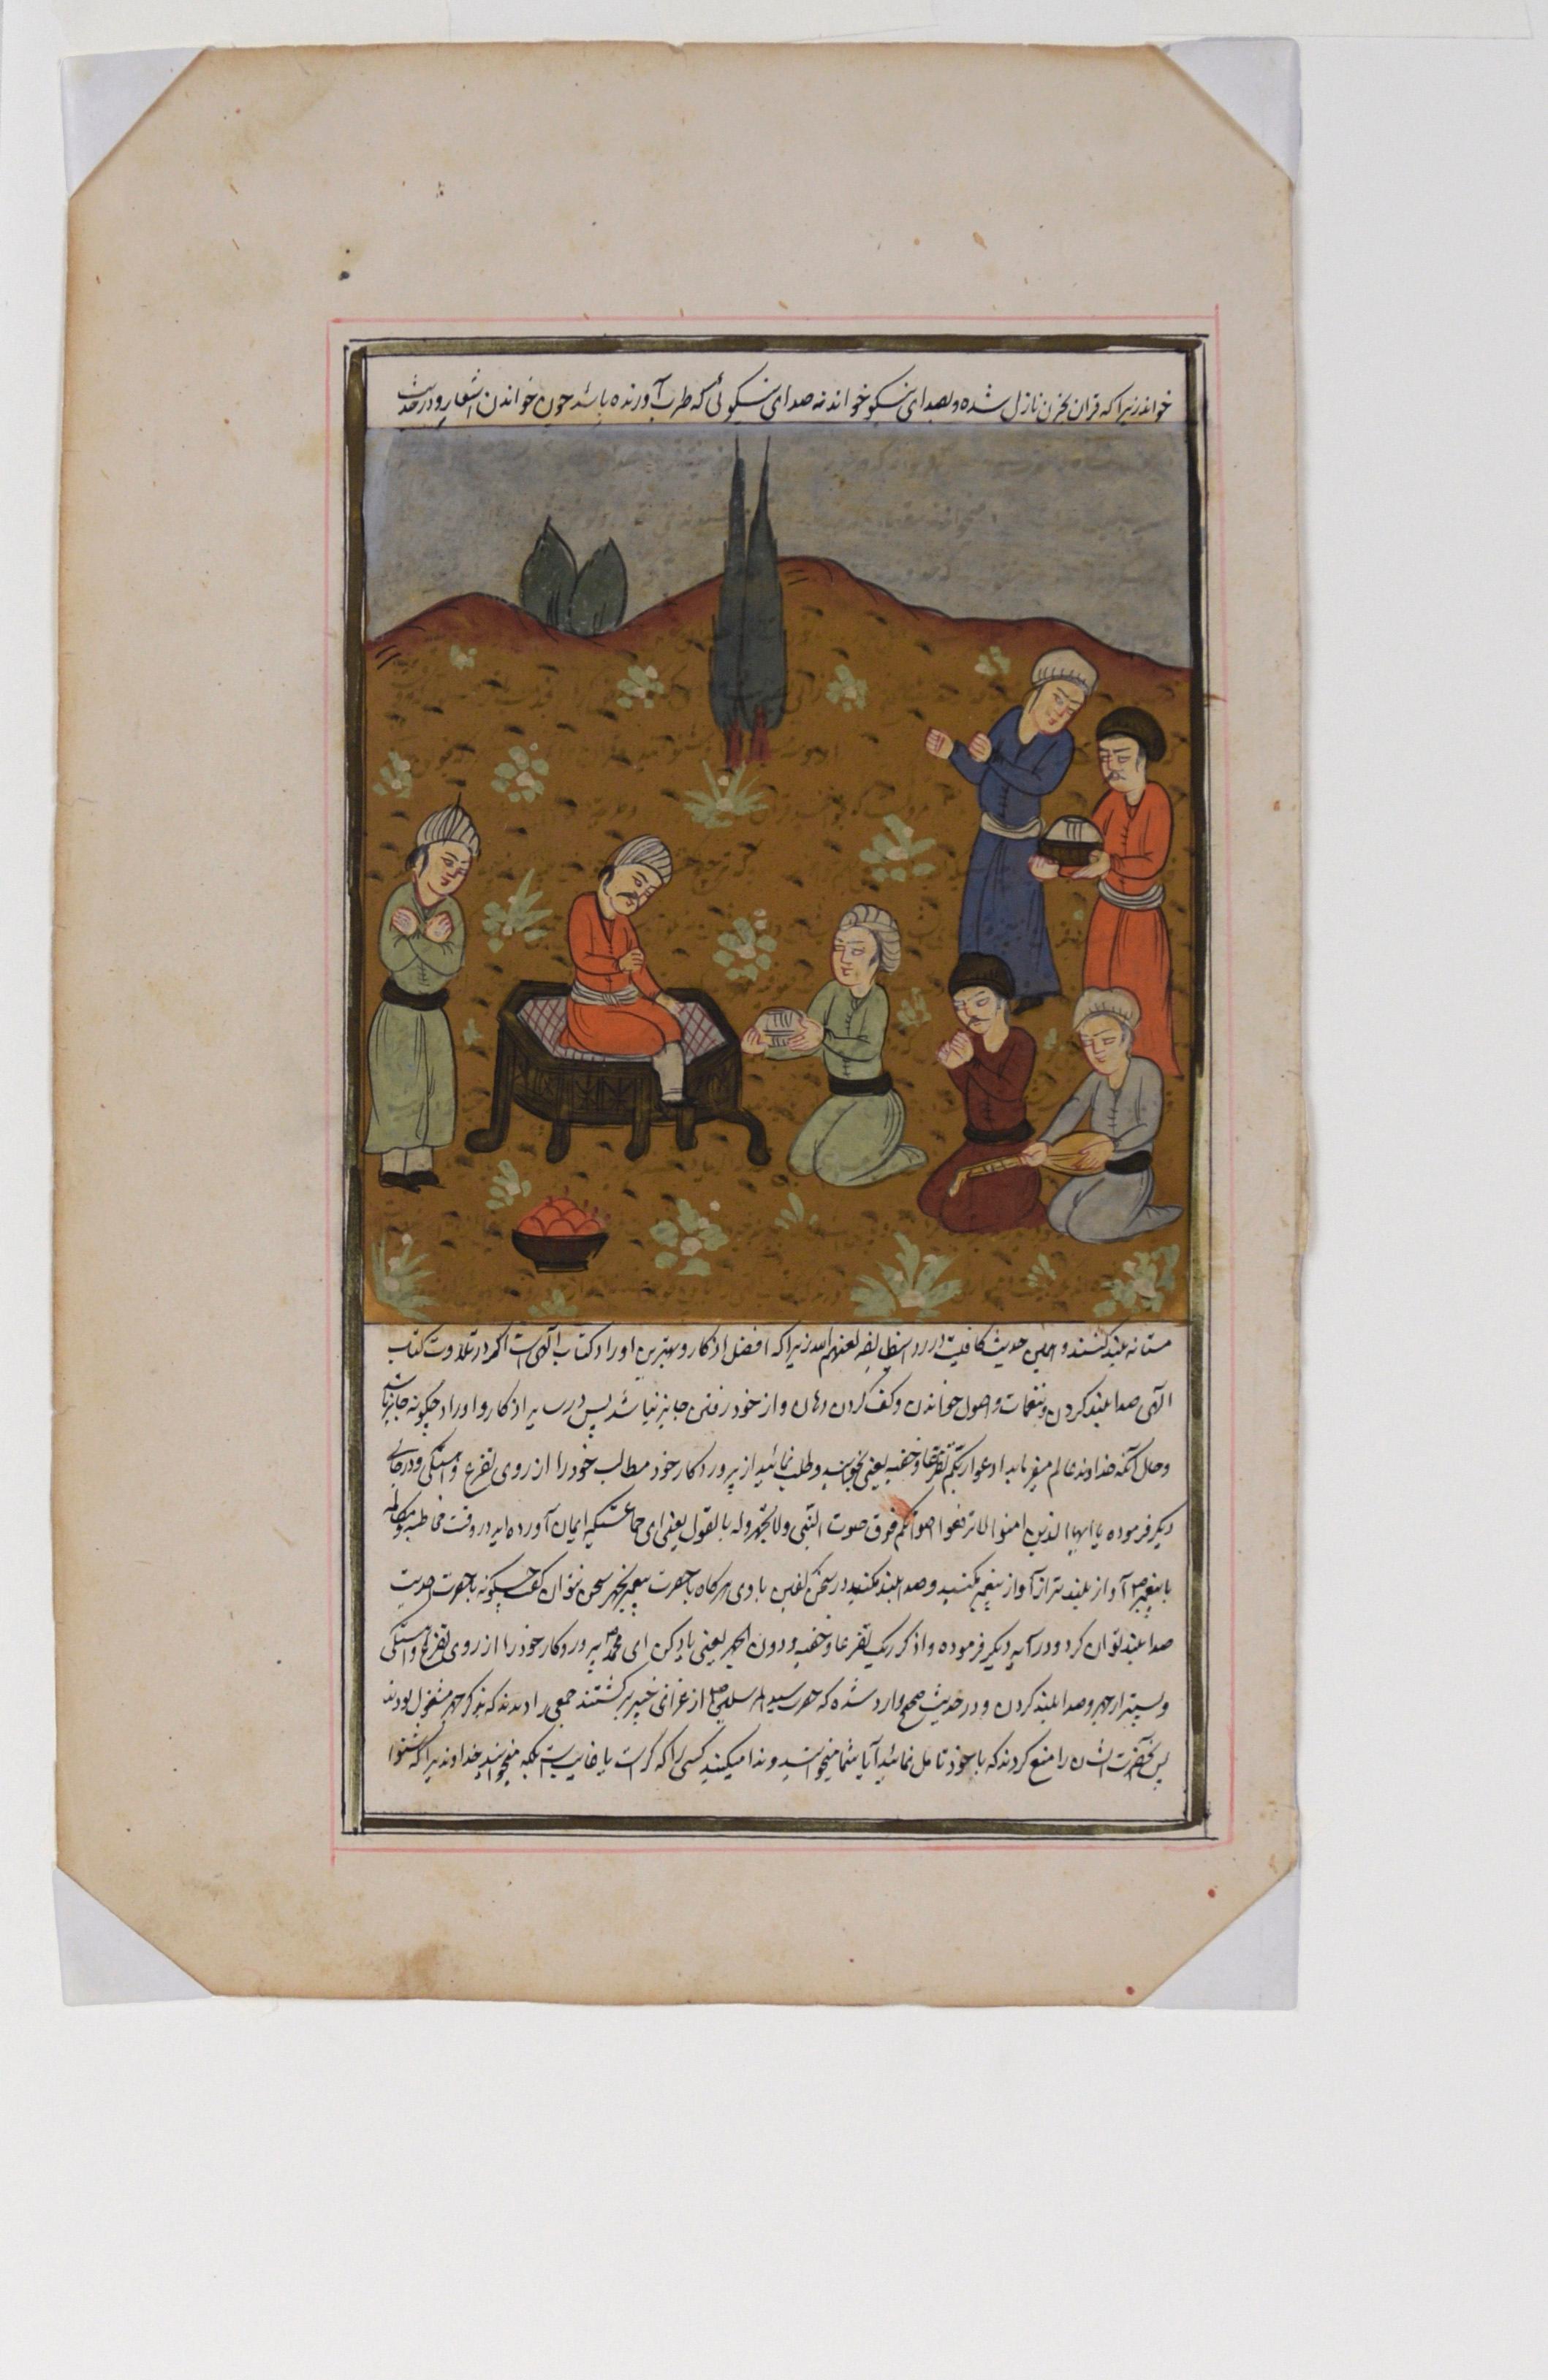 خواند زیرا که قران بحزن نازل شده و بصدای نیکو خواند نه صدای نیکوئی که طرب آورنده باشد چون خواندن اشعار و در حدیث
مستانه بلند کنند و همین حدیث کافیست در رد این طایفه لعنهم الله زیرا که افضل اذکار و بهترین اوراد کتاب الهی است هرگاه در تلاوت کتاب
الهی صدا بلند کردن و بنغمات و اصول خواندن و کف کردن دهان و از خود رفتن جایز نباشد پس در سایر اذکار و اوراد چگونه جایز باشد
و حال آنکه خداوند عالم میفرماید ادعوا ربکم تضرعا و خفیه یعنی بخوانید و طلب نمائید از پروردکار خود مطالب خود را از روی تضرع و آهستکی و در جای
دیکر فرموده یا ایها الذین امنوا لا ترفعوا اصواتکم فوق صوت النبی ولا تجهروا له بالقول یعنی ای جماعتیکه ایمان آورده اید در وقت مخاطبه و مکالمه
با پیغمبر آواز بلندتر از آواز پیغمبر مکنید و صدا بلند مکنید در سخن کفتن با وی هرکاه با حضرت پیغمبر بجهر سخن نتوان کفت چکونه با حضرت احدیت
صدا بلند توان کرد و در آیه دیکر فرموده واذکر ربک تضرعا و خفیه و دون الجهر یعنی یاد کن ای محمد پروردکار خود را از روی تضرع و آهستکی
و پستتر از جهر و صدا بلند کردن و در حدیث صحیح وارد شده که حضرت سید المرسلین از غزای خیبر برکشتند جمعی را دیدند که بذکر جهر مشغول بودند
پس آنحضرت ایشان را منع کردند که با خود تامل نمائید آیا شما میخوانید و ندا میکنید کسی را که کر است یا غایب است بلکه میخوانید خداوندیرا که شنوا